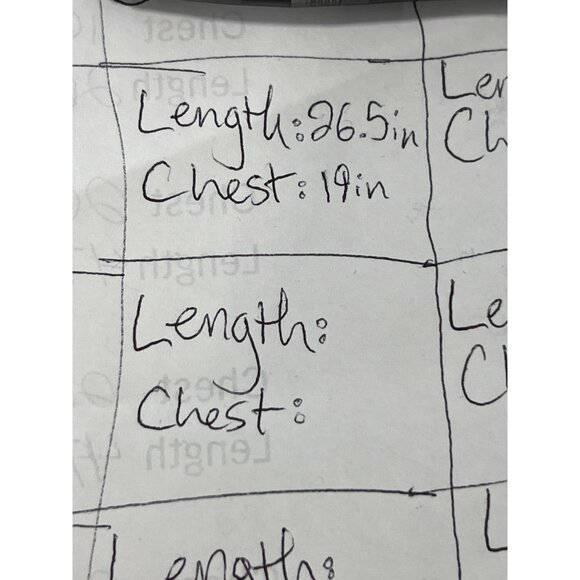 Length: 26.5in
Chest: 19in
Length:
Chest:
Length:
Le
Ch
Le
C
L